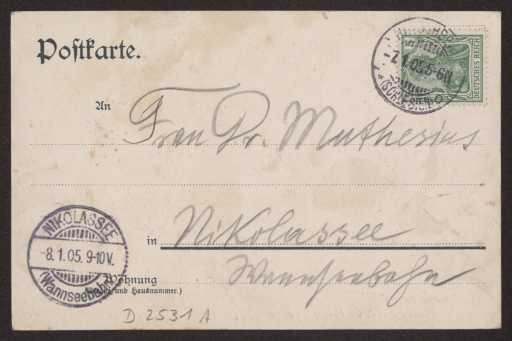 Postkarte.
DEUTSCHES REICH
-7.1.05.5-6N.
(SCHLESIEN)
An
Frau Dr. Muthesius
NIKOLASSEE
-8.1.05. 9-10V.
(Wannseebahn)
in Nikolassee
Wannseebahn
Wohnung
(Straße und Hausnummer.)
D 2531 A